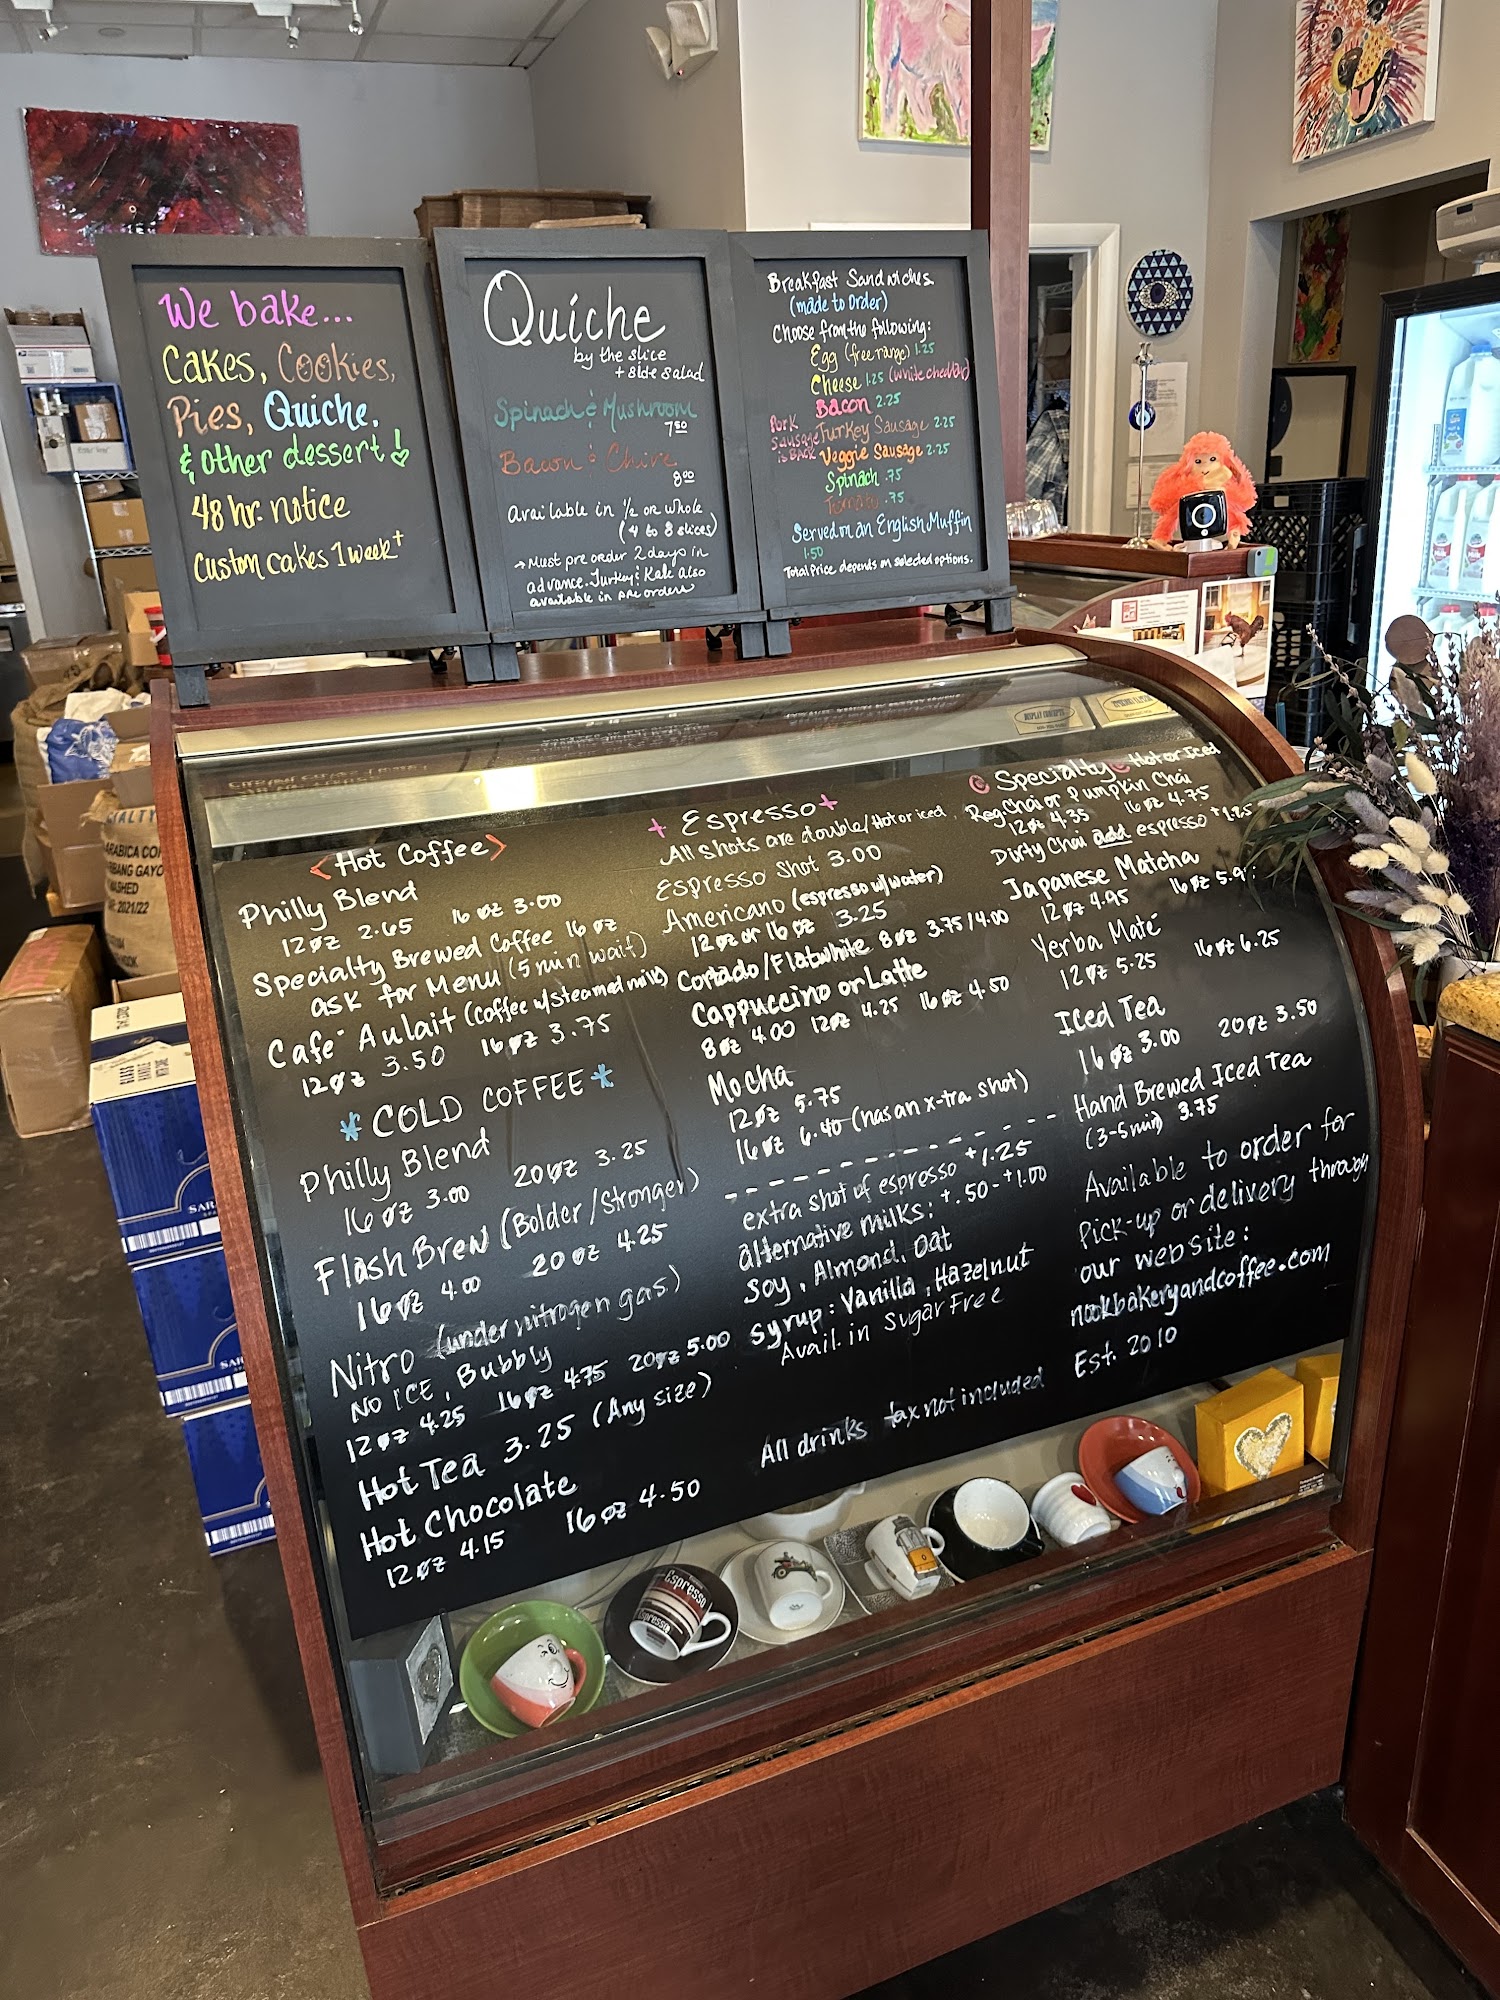 We bake...
Cakes, Cookies,
Pies, Quiche,
& other dessert!
48 hr. notice
Custom cakes 1 week+
Quiche
by the slice
+ side salad
Spinach & Mushroom
7.50
Bacon & Chive
8.00
available in 1/2 or whole
(4 to 8 slices)
→ Must pre order 2 days in
advance. Turkey & Kale also
available in pre orders
Breakfast Sandwiches
(made to order)
Choose from the following:
Egg (free range) 1.25
Cheese 1.25 (white cheddar)
Bacon 2.25
Pork
Sausage
is BACK
Turkey Sausage 2.25
Veggie Sausage 2.25
Spinach .75
Tomato .75
Served on an English Muffin
1.50
Total price depends on selected options.
<Hot Coffee>
Philly Blend
12oz 2.65 16oz 3.00
Specialty Brewed Coffee 16oz
ask for Menu (5 min wait)
Cafe Aulait (coffee w/steamed milk)
12oz 3.50 16oz 3.75
* COLD COFFEE *
Philly Blend
16oz 3.00 20oz 3.25
Flash Brew (Bolder/Stronger)
16oz 4.00 20oz 4.25
Nitro (under nitrogen gas)
NO ICE, Bubbly
12oz 4.25 16oz 4.75 20oz 5.00
Hot Tea 3.25 (Any size)
Hot Chocolate
12oz 4.15 16oz 4.50
+ Espresso +
All shots are double/Hot or iced
Espresso Shot 3.00
Americano (espresso w/water)
12oz or 16oz 3.25
Cortado/Flatwhite 8oz 3.75/4.00
Cappuccino or Latte
8oz 4.00 12oz 4.25 16oz 4.50
Mocha
12oz 5.75
16oz 6.40 (has an x-tra shot)
extra shot of espresso +1.25
alternative milks: +.50-+1.00
Soy, Almond, Oat
Syrup: Vanilla, Hazelnut
Avail. in Sugar Free
All drinks tax not included
Specialty Hot or Iced
Reg. Chai or Pumpkin Chai
12oz 4.35 16oz 4.75
Dirty Chai add espresso +1.25
Japanese Matcha
12oz 4.95 16oz 5.9
Yerba Maté
12oz 5.25 16oz 6.25
Iced Tea
16oz 3.00 20oz 3.50
Hand Brewed Iced Tea
(3-5 min) 3.75
Available to order for
Pick-up or delivery through
our website:
nookbakeryandcoffee.com
Est. 2010
ARABICA CO
WASHED
2021/22
Espresso